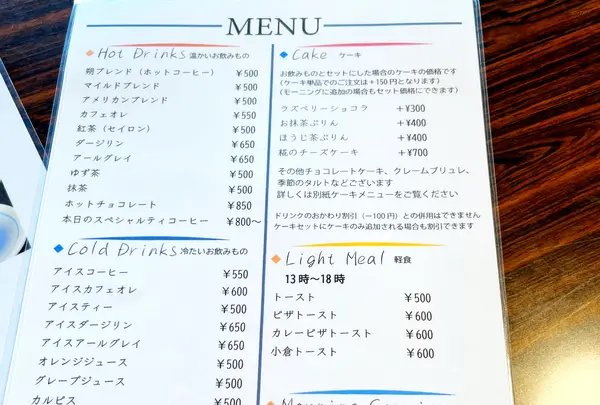 MENU
Hot Drinks 温かいお飲みもの
朔ブレンド（ホットコーヒー） ￥500
マイルドブレンド ￥500
アメリカンブレンド ￥500
カフェオレ ￥550
紅茶（セイロン） ￥500
ダージリン ￥650
アールグレイ ￥650
ゆず茶 ￥500
抹茶 ￥500
ホットチョコレート ￥850
本日のスペシャルティコーヒー ￥800～
Cold Drinks 冷たいお飲みもの
アイスコーヒー ￥550
アイスカフェオレ ￥600
アイスティー ￥500
アイスダージリン ￥650
アイスアールグレイ ￥650
オレンジジュース ￥500
グレープジュース ￥500
カルピス ￥500
Cake ケーキ
お飲みものとセットにした場合のケーキの価格です
（ケーキ単品でのご注文は＋150円となります）
（モーニングに追加の場合もセット価格にできます）
ラズベリーショコラ ＋￥300
お抹茶ぷりん ＋￥400
ほうじ茶ぷりん ＋￥400
糀のチーズケーキ ＋￥700
その他チョコレートケーキ、クレームブリュレ、
季節のタルトなどございます
詳しくは別紙ケーキメニューをご覧ください
ドリンクのおかわり割引（－100円）との併用はできません
ケーキセットにケーキのみ追加される場合も割引できます
Light Meal 軽食
13時～18時
トースト ￥500
ピザトースト ￥600
カレーピザトースト ￥600
小倉トースト ￥600